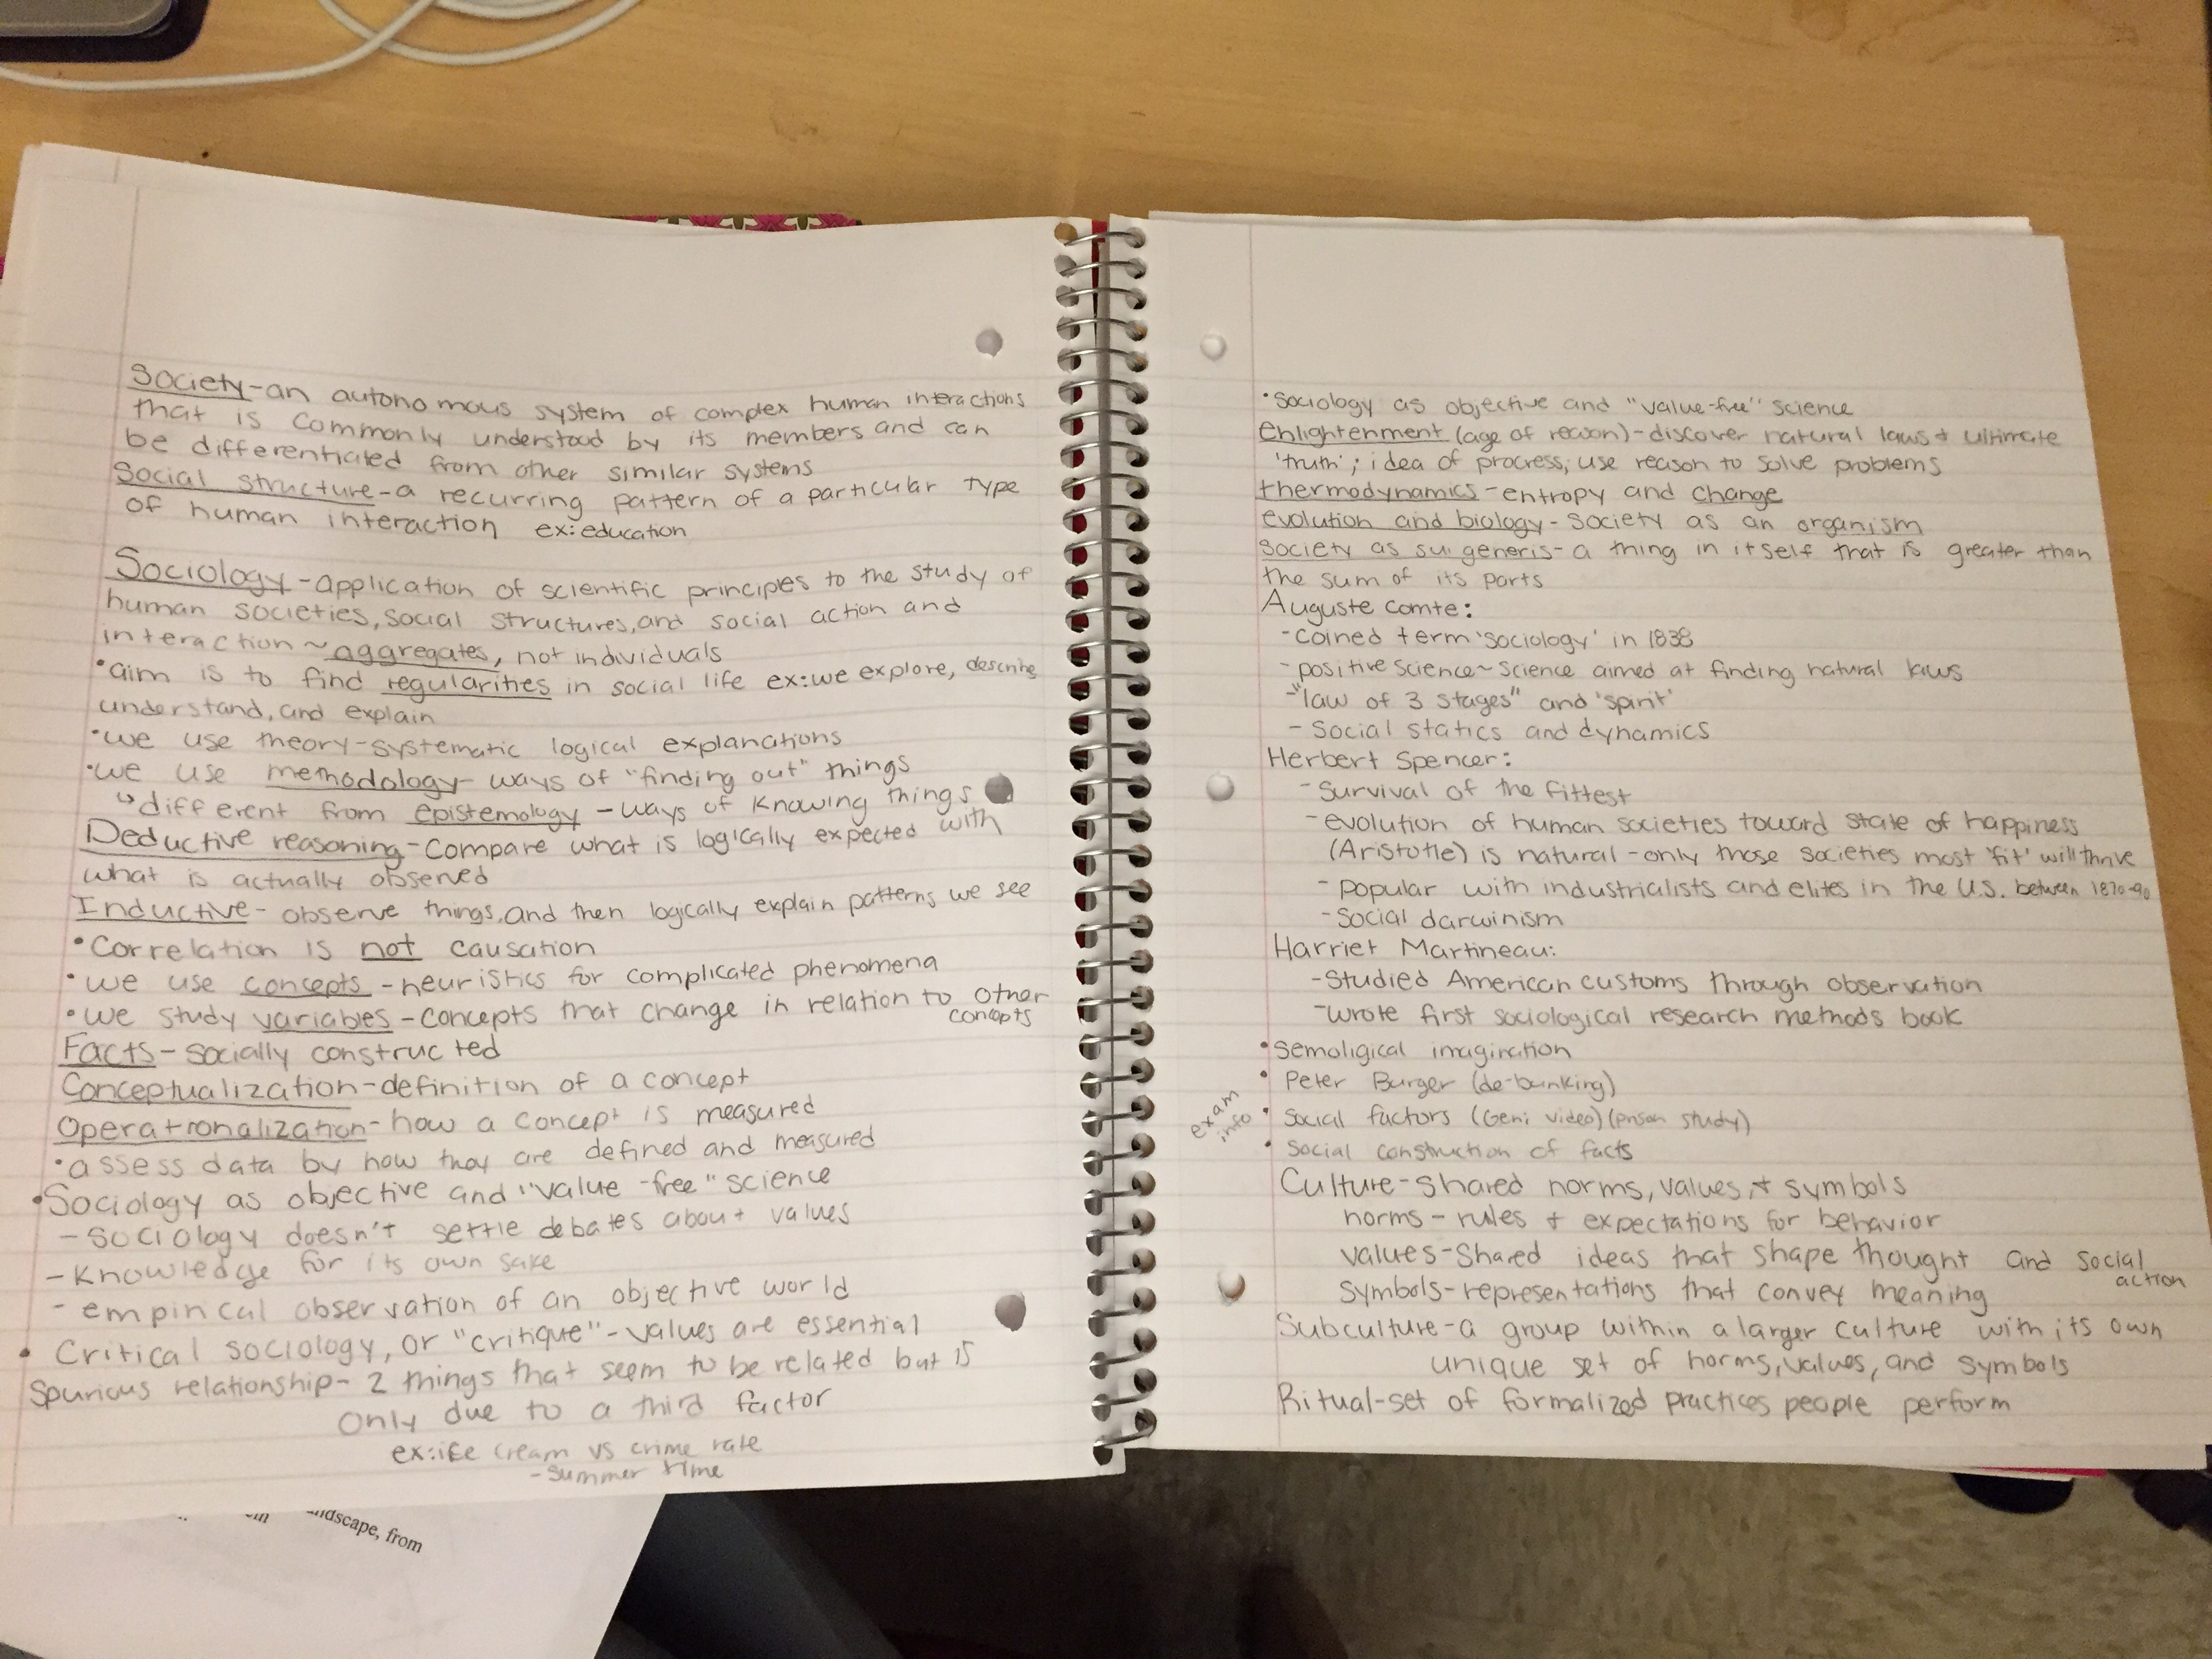 Society-an autonomous system of complex human interactions
that is commonly understood by its members and can
be differentiated from other similar systems
Social structure-a recurring pattern of a particular type
of human interaction ex:education
Sociology-application of scientific principles to the study of
human societies, social structures, and social action and
interaction ~ aggregates, not individuals
•aim is to find regularities in social life ex: we explore, describe
understand, and explain
•we use theory-systematic logical explanations
•we use methodology- ways of "finding out" things
↳different from epistemology - ways of knowing things
Deductive reasoning-compare what is logically expected with
what is actually observed
Inductive- observe things, and then logically explain patterns we see
•Correlation is not causation
•we use concepts-heuristics for complicated phenomena
•we study variables-concepts that change in relation to other
concepts
Facts-socially constructed
Conceptualization-definition of a concept
Operationalization-how a concept is measured
•assess data by how they are defined and measured
•Sociology as objective and "value-free" science
- sociology doesn't settle debates about values
- Knowledge for its own sake
- empirical observation of an objective world
• Critical sociology, or "critique"-values are essential
Spurious relationship- 2 things that seem to be related but is
only due to a third factor
ex:ice cream vs crime rate
-summer time
ndscape, from
•sociology as objective and "value-free" science
enlightenment (age of reason)-discover natural laws + ultimate
'truth'; idea of progress; use reason to solve problems
thermodynamics-entropy and change
evolution and biology-society as an organism
society as sui generis-a thing in itself that is greater than
the sum of its parts
Auguste Comte:
-coined term 'sociology' in 1838
-positive science~science aimed at finding natural laws
-"law of 3 stages" and 'spirit'
- Social statics and dynamics
Herbert Spencer:
-Survival of the fittest
-evolution of human societies toward state of happiness
(Aristotle) is natural-only those societies most 'fit' will thrive
-popular with industrialists and elites in the U.S. between 1870-90
-Social darwinism
Harriet Martineau:
-Studied American customs through observation
-wrote first sociological research methods book
•semoligical imagination
•Peter Burger (de-bunking)
exam
info
•Social factors (Geni video) (prison study)
•Social construction of facts
Culture-shared norms, values, + symbols
norms-rules + expectations for behavior
values-Shared ideas that shape thought and social
action
symbols-representations that convey meaning
Subculture-a group within a larger culture with its own
unique set of norms, values, and symbols
Ritual-set of formalized practices people perform